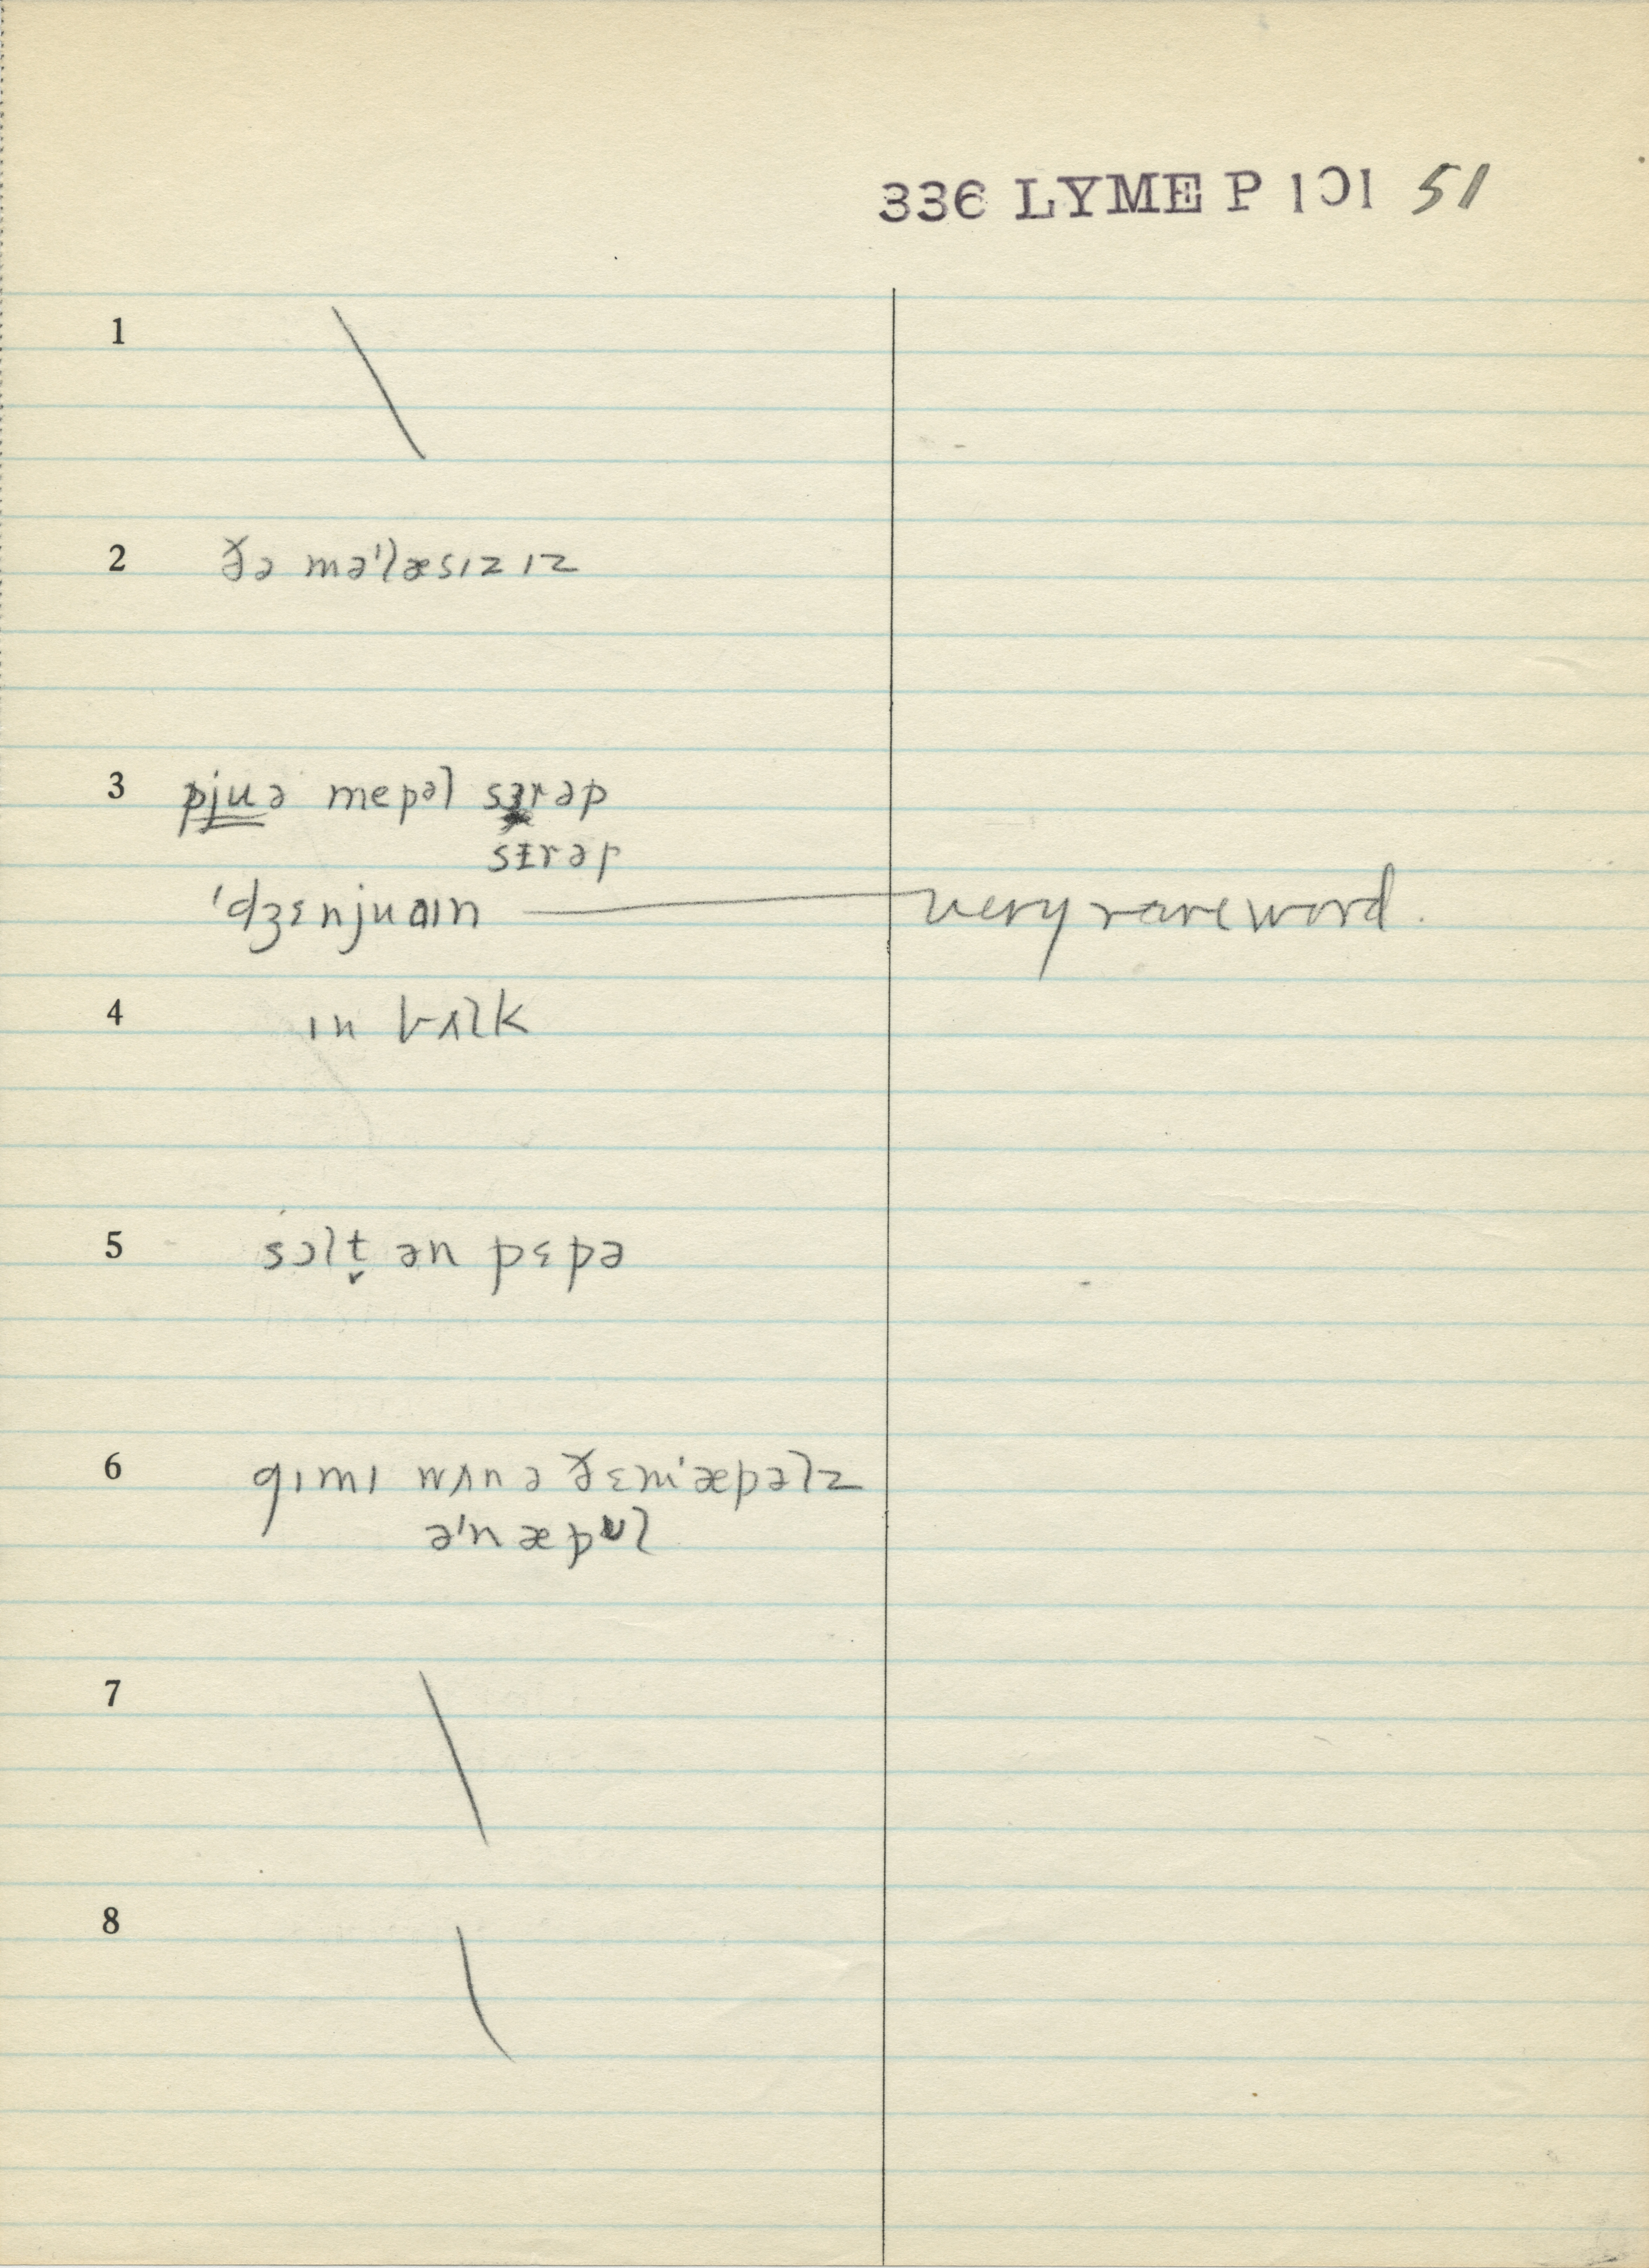 336 LYME P 101 51
1
2 ðə mə'læsɪz ɪz
3 pjuə mepəl sɜrəp
sɪrəp
'dʒɛnjuaɪn — very rare word.
4 ɪn bʌlk
5 sɔlt̬ ən pɛpə
6 gɪmɪ wʌn ə ðɛm 'æpəlz
ə'n æpʊl
7
8